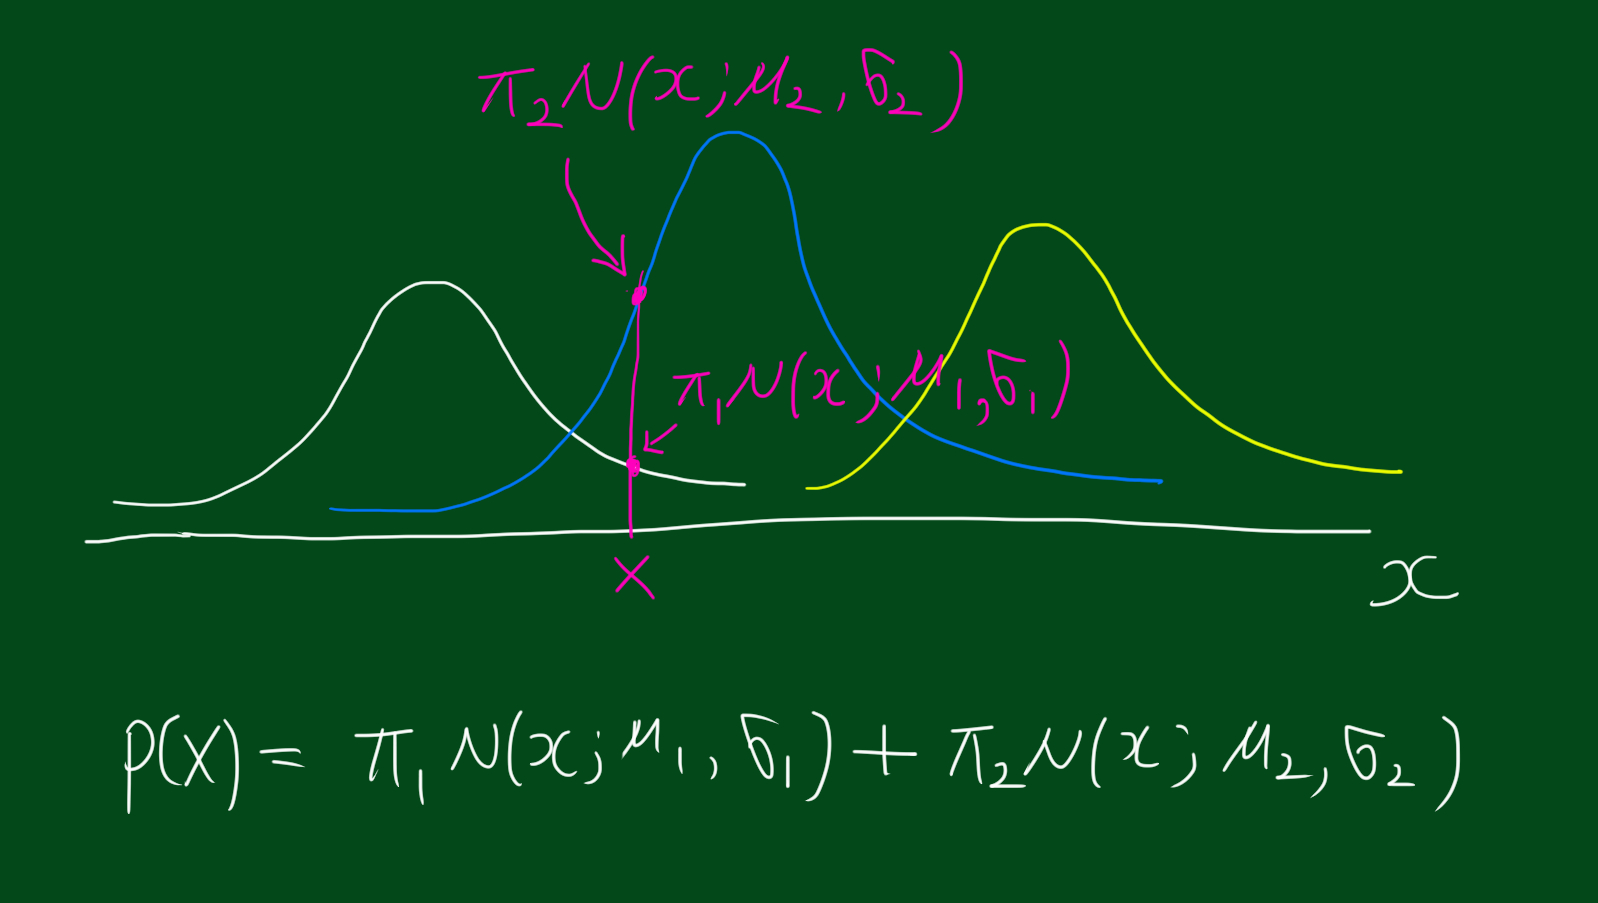 π₂N(x;μ₂,σ₂)
π₁N(x;μ₁,σ₁)
X
x
P(X) = π₁N(x;μ₁,σ₁) + π₂N(x;μ₂,σ₂)